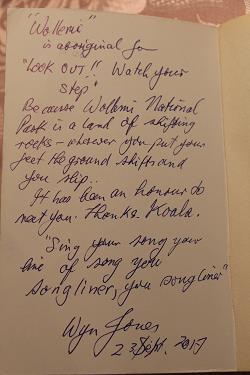 "Wollemi"
is aboriginal for
"Look out!! Watch your
step"..
Because Wollemi National
Park is a land of shifting
rocks - wherever you put your
feet the ground shifts and
you slip..
It has been an honour to
meet you. Thanks Koala.
"Sing your song your
line of song you
songliner, you songliner"
Wyn Jones
23 Sept. 2017